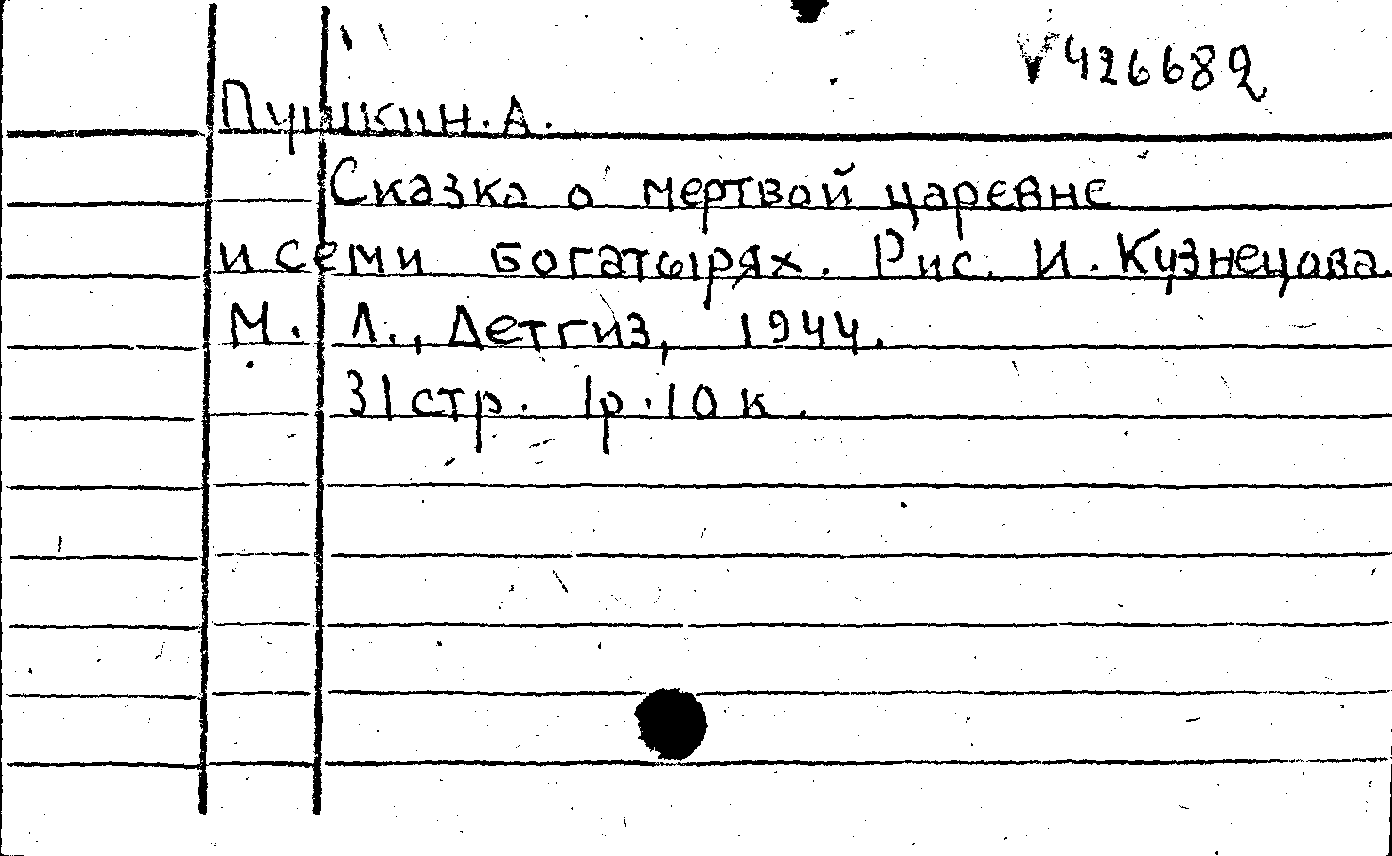 V426682
Пушкин. А.
Сказка о мертвой царевне
и семи богатырях. Рис. И. Кузнецова.
М. Л., Детгиз, 1944.
31 стр. 1р. 10 к.